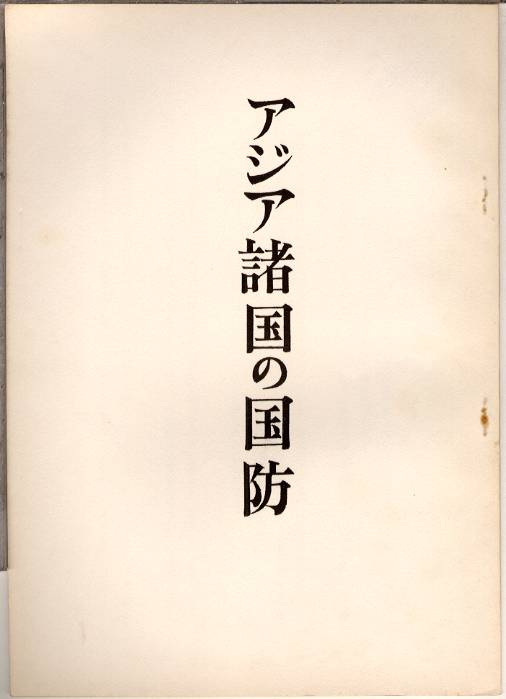 アジア諸国の国防